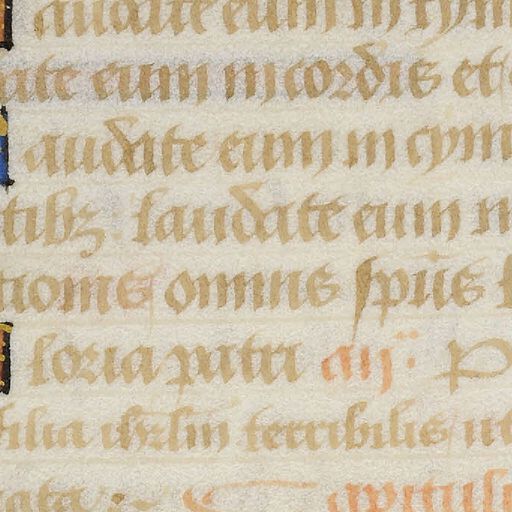 audate eum in tym
ate eum in cordis et
audate eum in cym
tibz : laudate eum in
tionis omnis spūs
loria patri añ: P
filia ihrlm̄ terribilis ut
nata : Capitulu